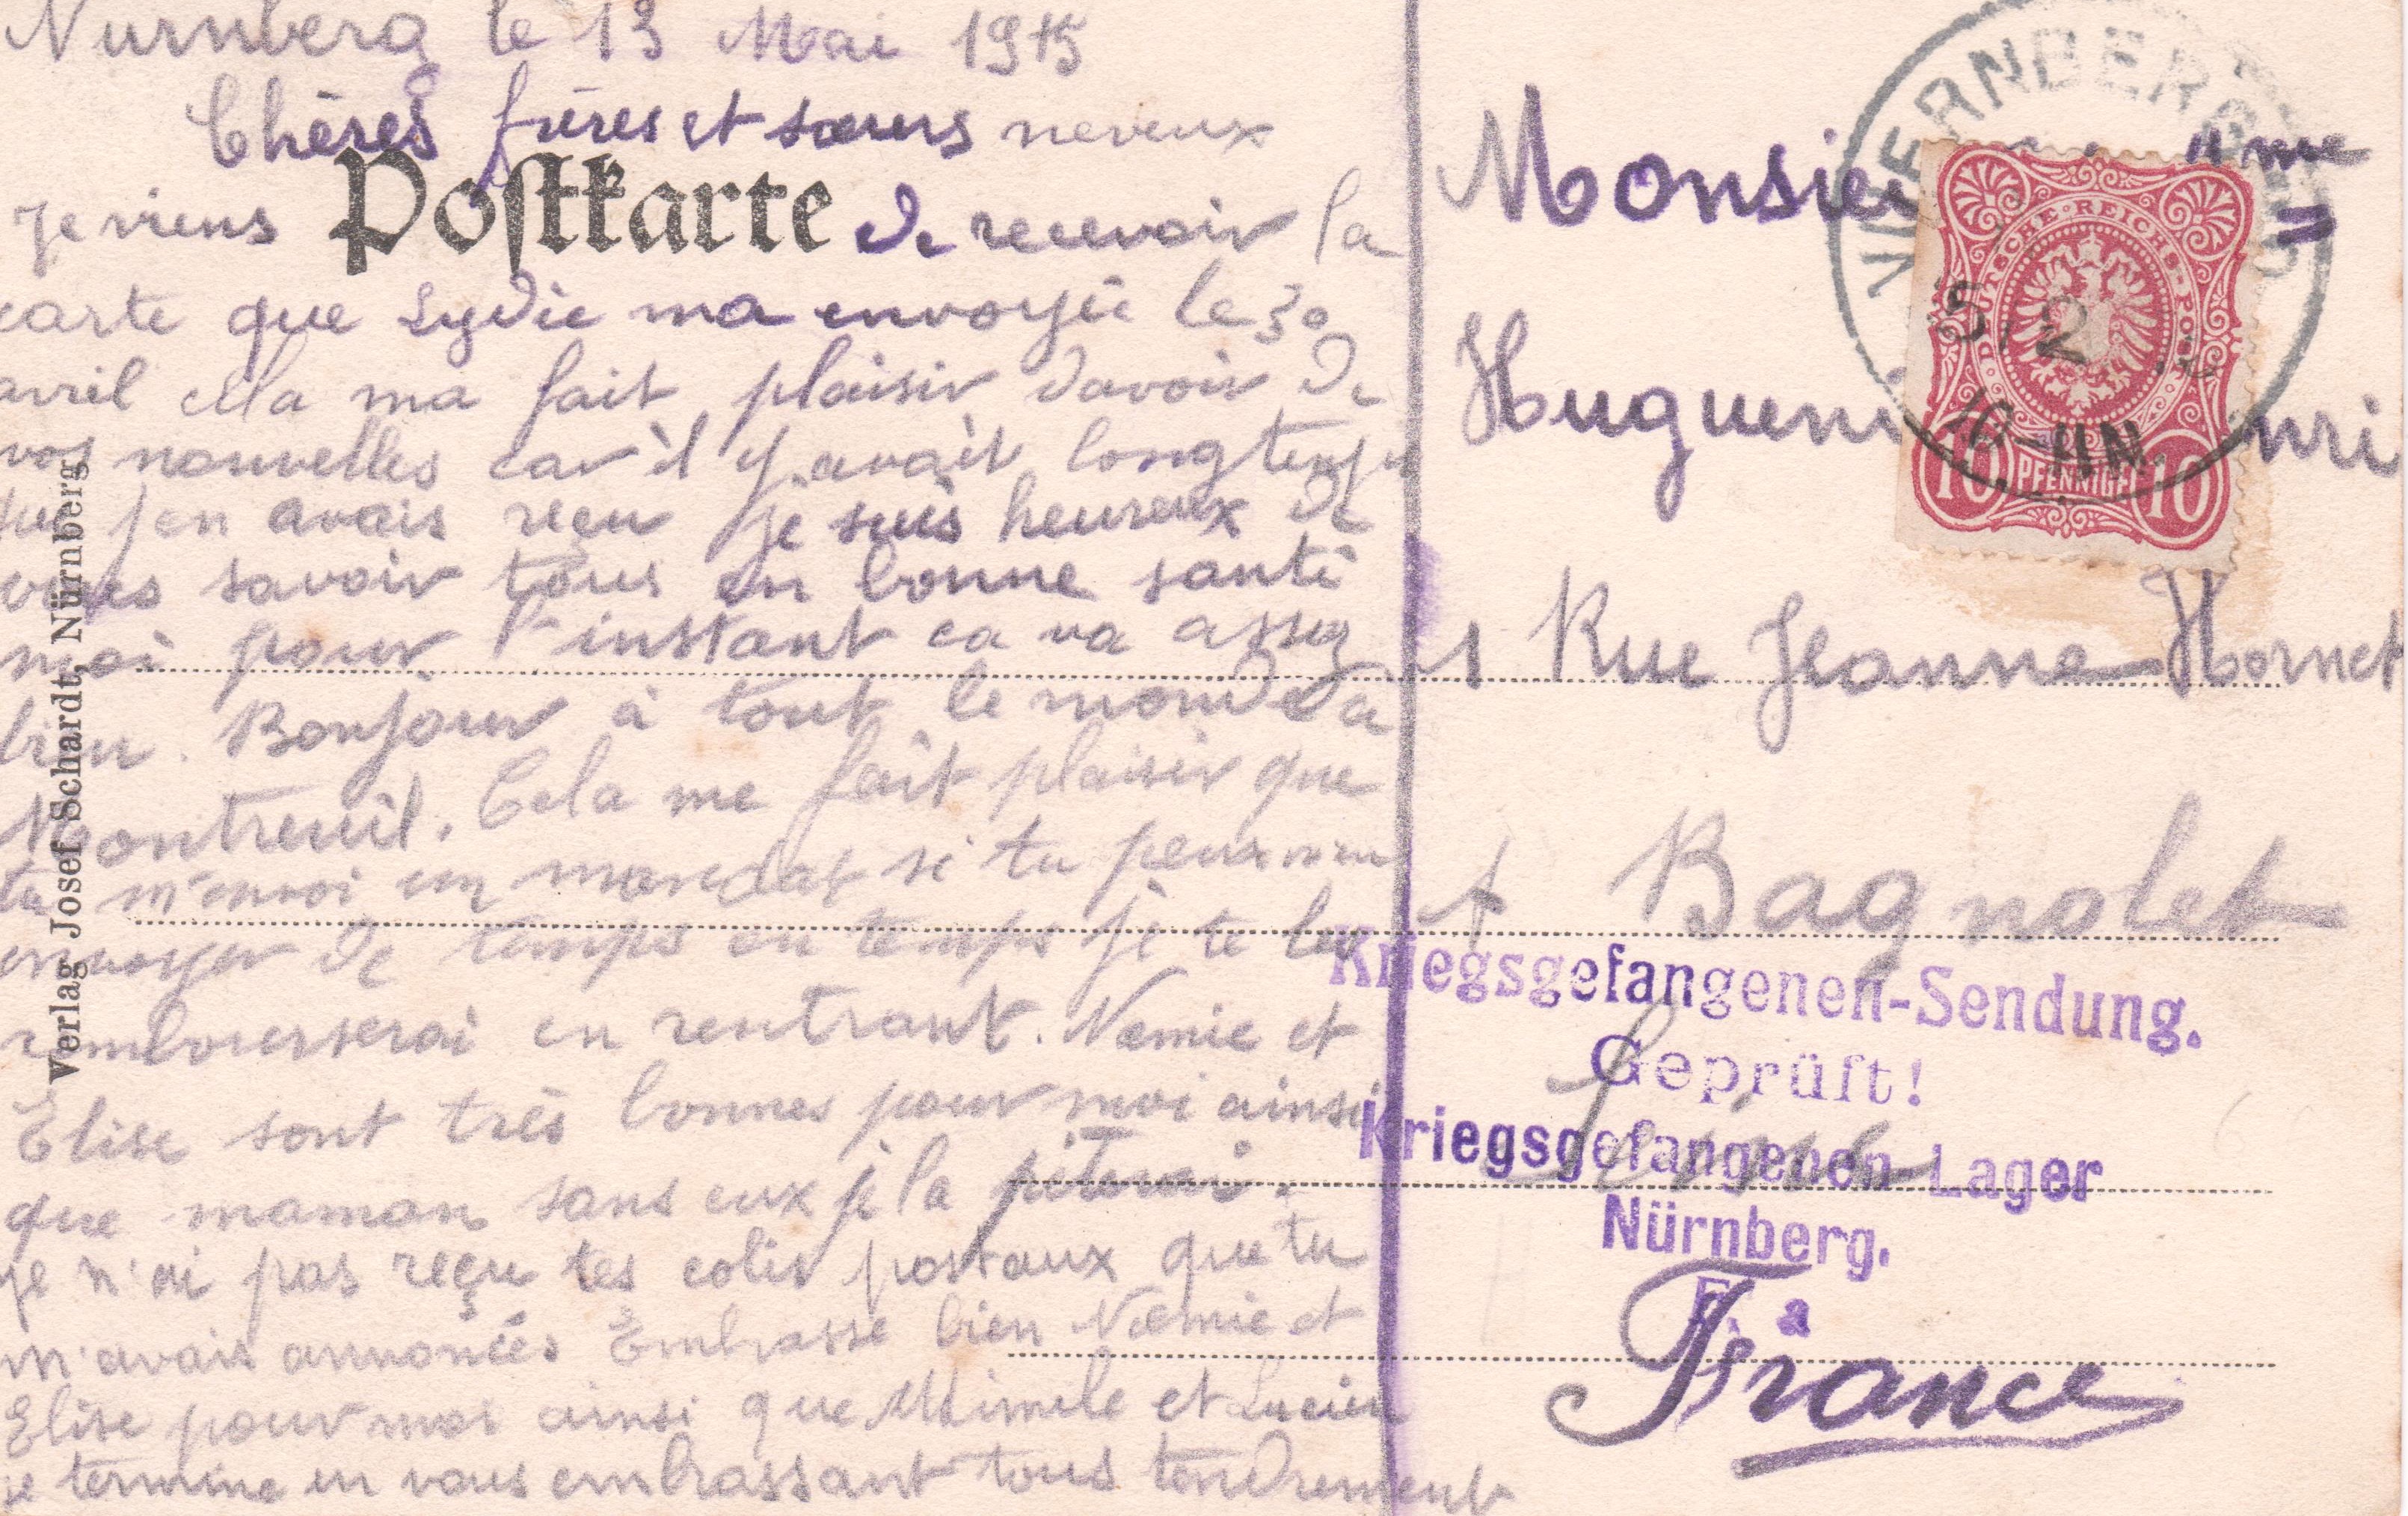 Nurnberg le 13 Mai 1915
Chères frères et sœurs neveux
je viens de recevoir la
carte que Lydie ma envoyée le 30
avril cela ma fait plaisir davoir de
vos nouvelles car il y avait longtemps
que j'en avais reçu je suis heureux de
vous savoir tous en bonne santé
moi pour l'instant ca va assez
bien. Bonjour à tout le monde a
Montreuil. Cela me fait plaisir que
tu m'envoi un mandat si tu peux
envoyer de temps en temps je te les
rembourserai en rentrant. Nœmie et
Elise sont très bonnes pour moi ainsi
que maman sans eux je la
je n'ai pas reçu tes colis postaux que tu
m'avais annoncées Embrasse bien Nœmie et
Elise pour moi ainsi que Mimile et Lucien
je termine en vous embrassant tous tendrement
Postkarte
Verlag Josef Schardt, Nürnberg
Monsieu me
Hugueni nri
1 Rue Jeanne Hornet
A Bagnolet
Seine
France
NUERNBERG
5 2
16 NN
DEUTSCHE REICHS-POST
10 PFENNIG 10
Kriegsgefangenen-Sendung.
Geprüft!
Kriegsgefangenen-Lager
Nürnberg.